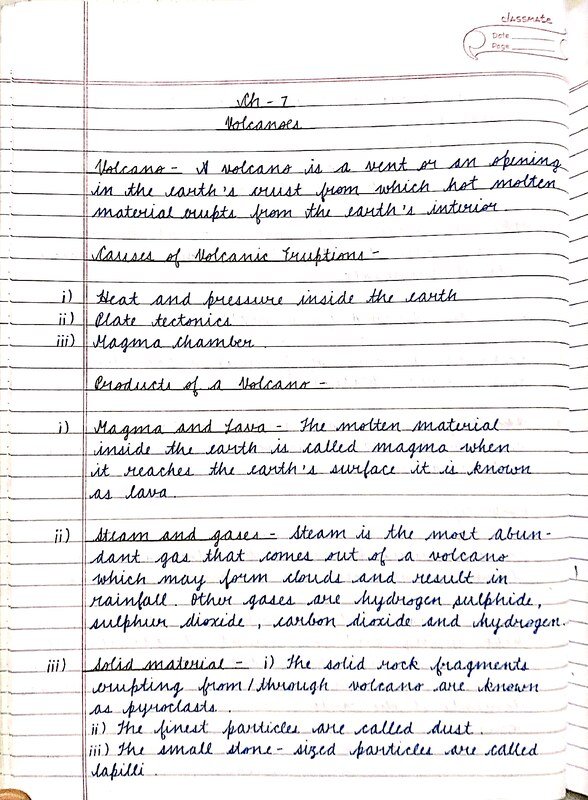 classmate
Date
Page
Ch - 7
Volcanoes
Volcano - A volcano is a vent or an opening
in the earth's crust from which hot molten
material erupts from the earth's interior
Causes of Volcanic Eruptions -
i) Heat and pressure inside the earth
ii) Plate tectonics
iii) Magma chamber.
Products of a Volcano -
i) Magma and Lava - The molten material
inside the earth is called magma when
it reaches the earth's surface it is known
as lava.
ii) Steam and gases - Steam is the most abun-
dant gas that comes out of a volcano
which may form clouds and result in
rainfall. Other gases are hydrogen sulphide,
sulphur dioxide, carbon dioxide and hydrogen.
iii) Solid material - i) The solid rock fragments
erupting from/through volcano are known
as pyroclasts.
ii) The finest particles are called dust.
iii) The small stone-sized particles are called
lapilli.